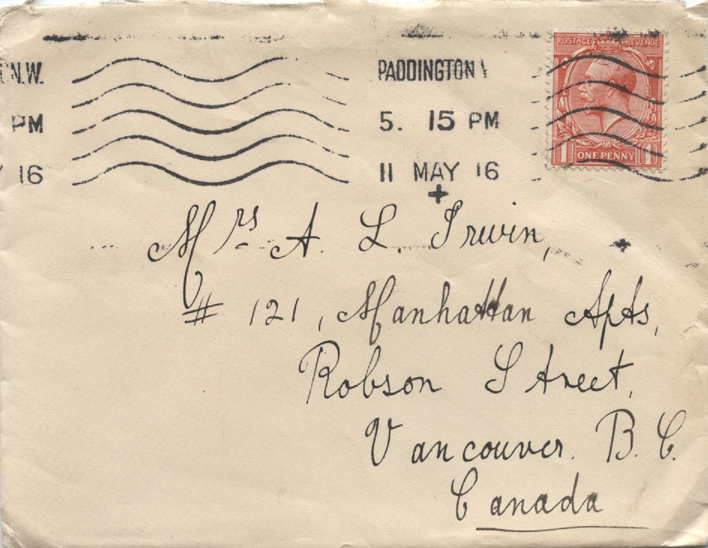 N.W. PADDINGTON
PM 5. 15 PM
16 11 MAY 16
POSTAGE REVENUE
1 ONE PENNY 1
Mrs A. L. Irwin,
# 121, Manhattan Apts,
Robson Street,
Vancouver. B. C.
Canada